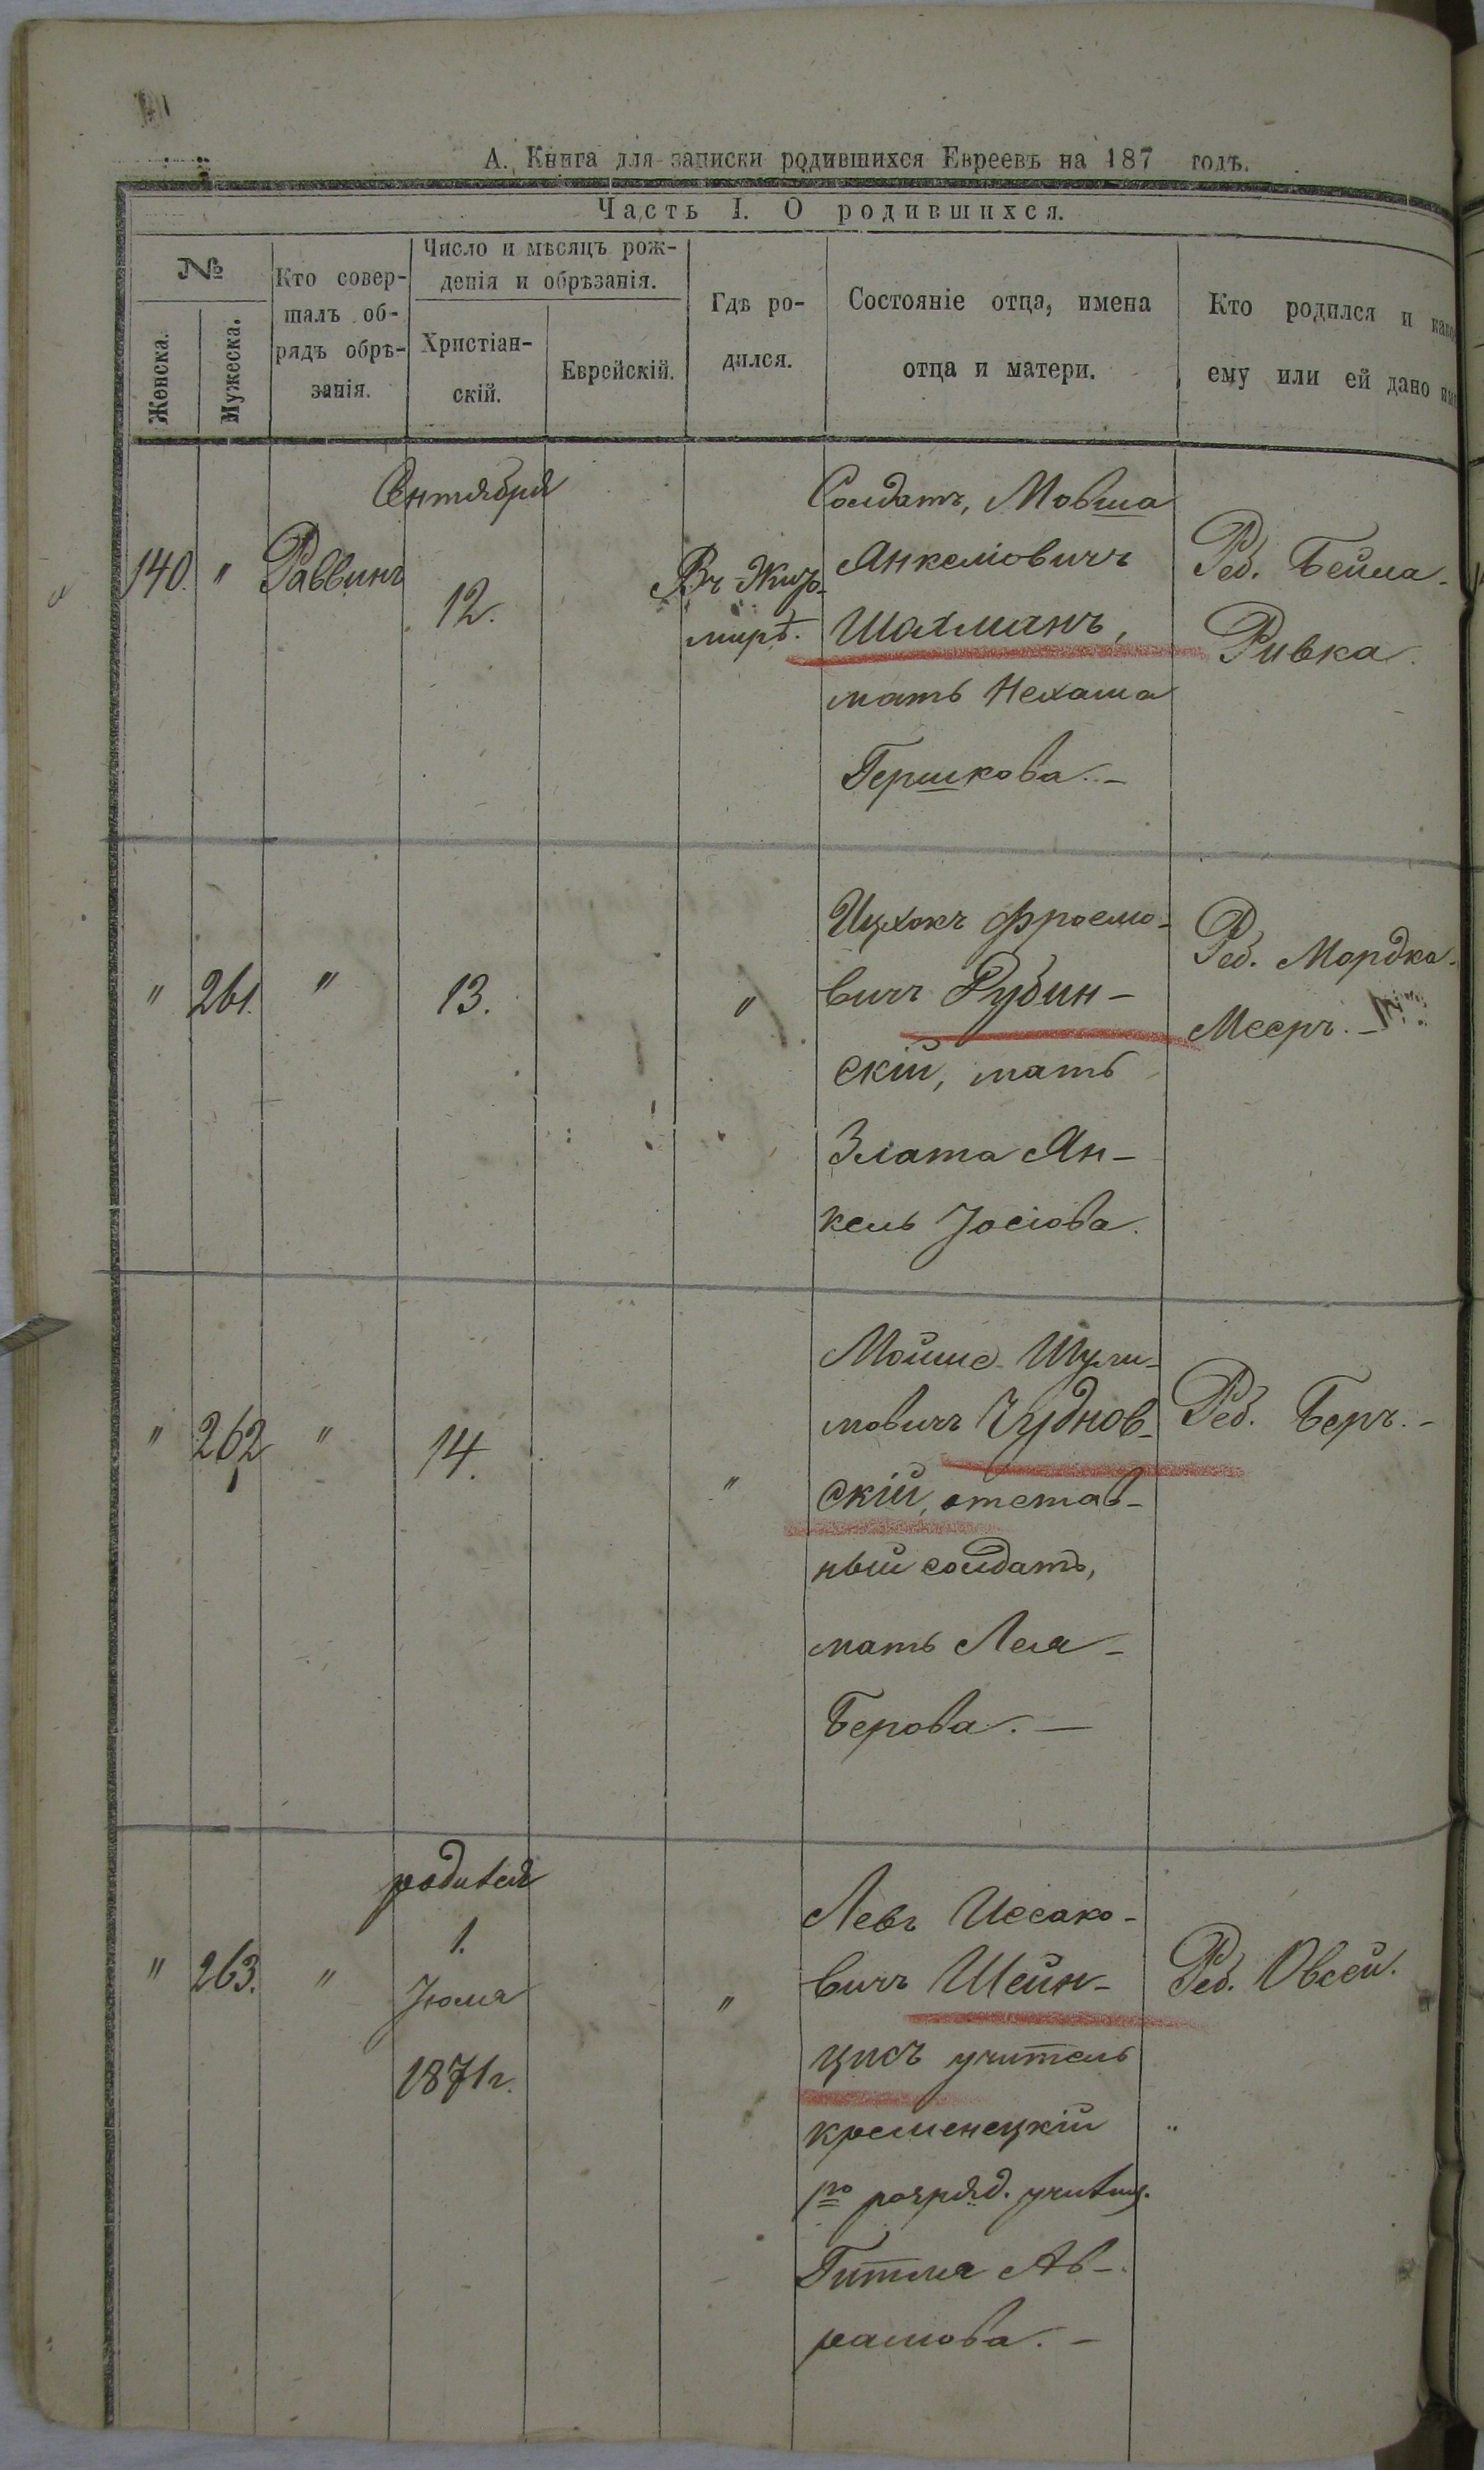 А. Книга для записки родившихся Евреевъ на 187 годъ.
Часть I. О родившихся.
№
Женска.
Мужеска.
Кто совер-
шалъ об-
рядъ обрѣ-
занія.
Число и мѣсяцъ рож-
денія и обрѣзанія.
Христіан-
скій.
Еврейскій.
Гдѣ ро-
дился.
Состояніе отца, имена
отца и матери.
Кто родился и
ему или ей дано
Сентября
140. " Раввинъ
12.
Въ Жито-
мирѣ.
Солдатъ, Мовша
Анкелiовичъ
Шахманъ,
мать Нехама
Гершкова. -
Реб. Бейла-
Ривка.
" 261. " 13. "
Ицхокъ Фроемо-
вичъ Рубин-
скій, мать
Злата Ян-
кель Іосіова.
Реб. Мордко-
Мееръ. -
" 262 " 14. "
Мойше Шули-
мовичъ Чуднов-
скій, отстав-
ный солдатъ,
мать Лея -
Берова. -
Реб. Беръ. -
" 263. "
родился
1.
Іюля
1871 г.
"
Левъ Иссако-
вичъ Шейн-
цисъ учитель
кременецкій
1го розряд. училищ.
Гитля Аб-
рамова. -
Реб. Овсей.